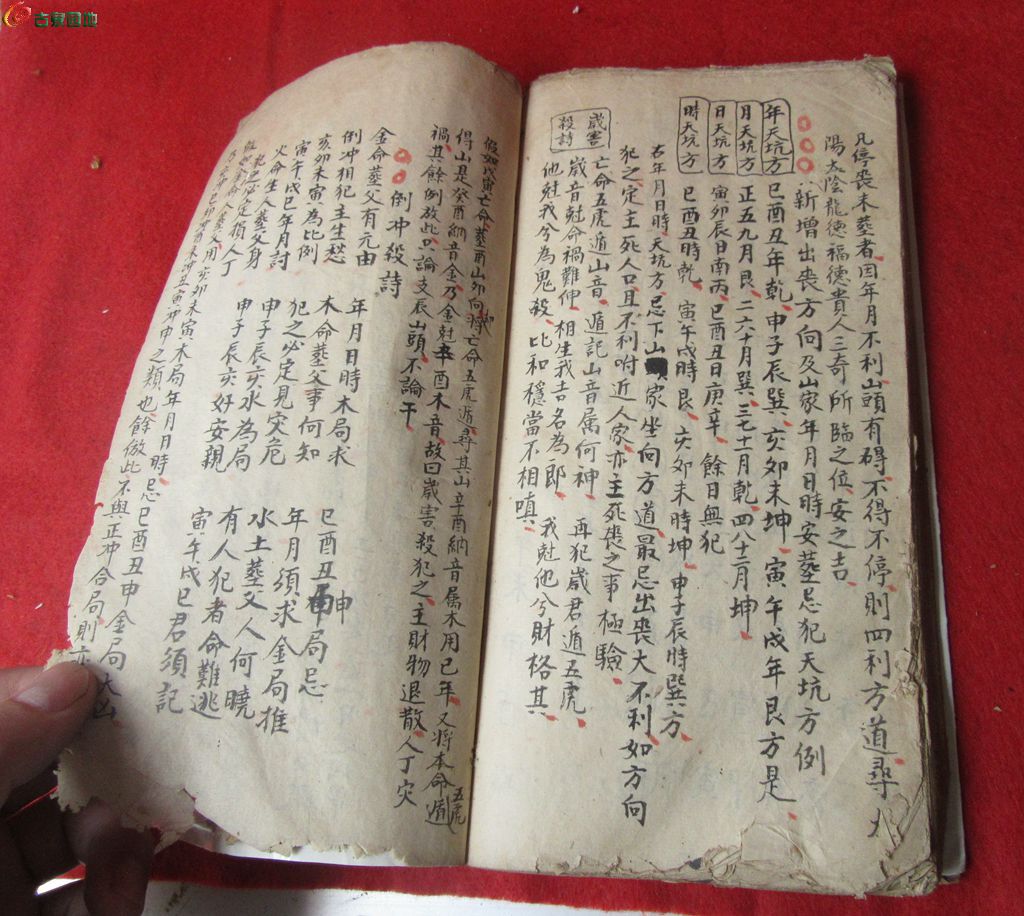 古泉園地
凡停丧未葬者因年月不利山頭有碍不得不停則四利方道尋太
陽太陰龍德福德貴人三奇所臨之位安之吉
新增出丧方向及山家年月日時安葬忌犯天坑方例
年天坑方 巳酉丑年乾 申子辰巽 亥卯未坤 寅午戌年艮方是
月天坑方 正五九月艮 二六十月巽 三七十一月乾 四八十二月坤
日天坑方 寅卯辰日南丙 巳酉丑日庚辛 餘日無犯
時天坑方 巳酉丑時乾 寅午戌時艮 亥卯未時坤 申子辰時巽方
右年月日時天坑方忌下山家坐向方道最忌出丧大不利如方向
犯之定主死人口且不利咐近人家亦主死丧之事極驗
歲害殺詩
亡命五虎遁山音 遁記山音属何神 再犯歲君遁五虎
歲音尅命禍難伸 相生我吉名為郎 我尅他兮財格其
他尅我兮為鬼殺 比和穩當不相嗔
假如戊寅亡命葬酉山卯向將亡命五虎遁尋其山辛酉納音属木用巳年又將本命遁五虎
得山是癸酉納音金乃金尅辛酉木音故曰歲害殺犯之主財物退散人丁灾
禍其餘例放此只論支辰山頭不論干
倒冲殺詩
金命葬父有元由 年月日時木局求
倒冲相犯主生愁 木命葬父事何知 巳酉丑申局忌
亥卯未寅為比例 犯之必定見灾危 年月須求金局推
寅午戌巳年月討 申子辰亥水為局 水土葬父人何曉
火命生人葬父身 申子辰亥好安親 有人犯者命難逃
犯也必定損人丁 寅午戌巳君須記
金命人葬父用亥卯未寅木局年月日時忌巳酉丑申金局大凶
冲申之類也餘倣此不與正冲合局則亦